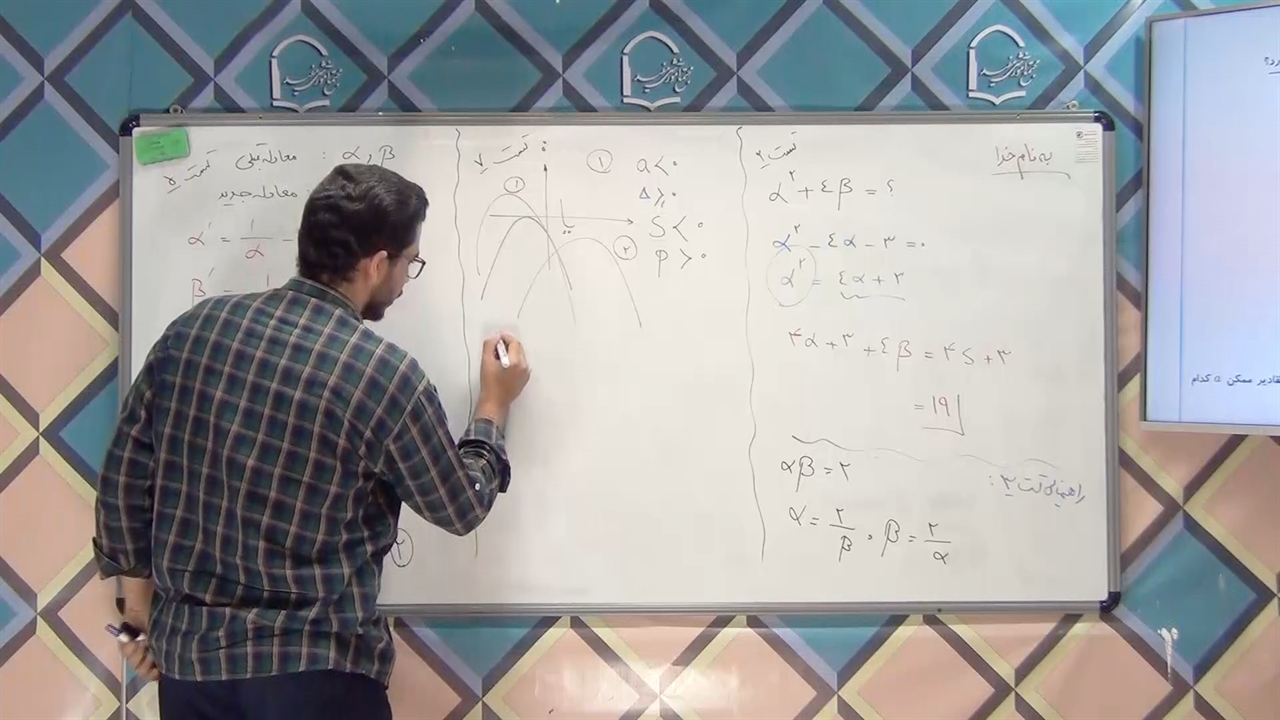 به نام خدا
تست ۲
α² + ٤β = ؟
α² - ٤α - ۳ = ۰
α² = ٤α + ۳
۴α + ۳ + ٤β = ۴S + ۳
= ۱۹
راهنمایی تست ۳:
αβ = ۲
α = ۲/β , β = ۲/α
تست ۷
۱
a < ۰
Δ ≥ ۰
S < ۰
P > ۰
یا
۱
۲
تست ۵
α, β : معادله قبلی
معادله جدید
α' = ۱/α -
β' = ۱
۲
رد؟
قادیر ممکن a کدام